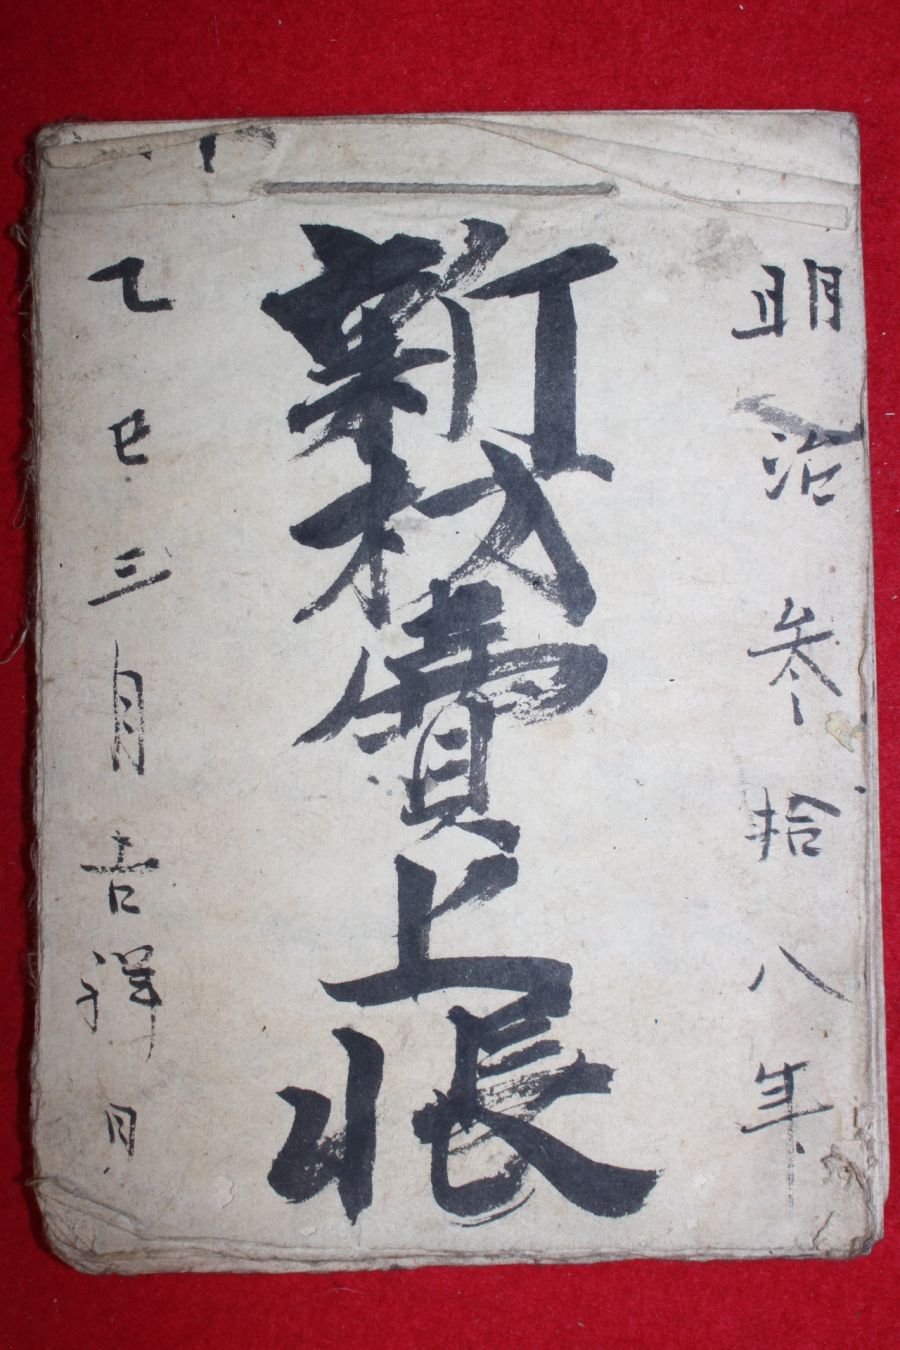 明治参拾八年
新材賣上帳
乙巳三月吉祥日